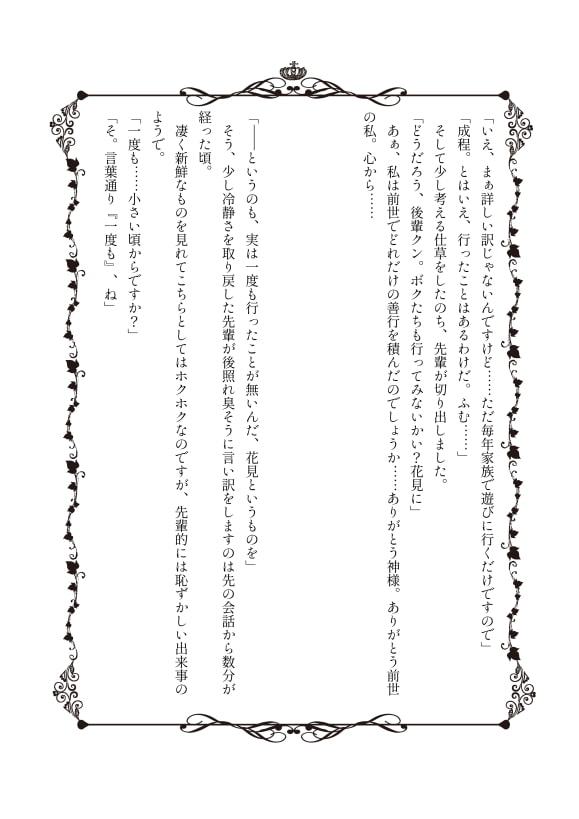 「いえ、まぁ詳しい訳じゃないんですけど……ただ毎年家族で遊びに行くだけですので」
「成程。とはいえ、行ったことはあるわけだ。ふむ……」
そして少し考える仕草をしたのち、先輩が切り出しました。
「どうだろう、後輩クン。ボクたちも行ってみないかい？花見に」
あぁ、私は前世でどれだけの善行を積んだのでしょうか……ありがとう神様。ありがとう前世
の私。心から……
「――というのも、実は一度も行ったことが無いんだ、花見というものを」
そう、少し冷静さを取り戻した先輩が後照れ臭そうに言い訳をしますのは先の会話から数分が
経った頃。
凄く新鮮なものを見れてこちらとしてはホクホクなのですが、先輩的には恥ずかしい出来事の
ようで。
「一度も……小さい頃からですか？」
「そ。言葉通り『一度も』、ね」